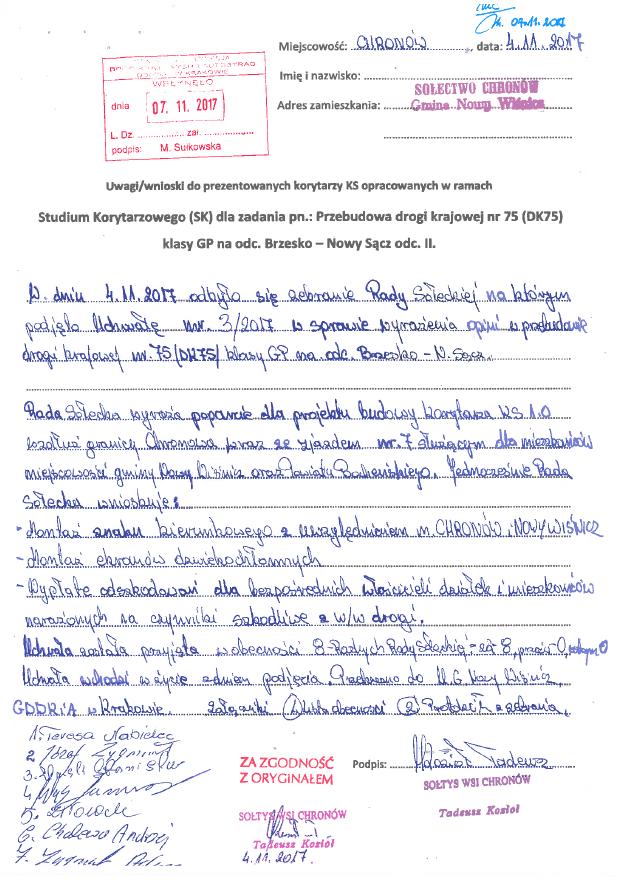 09.11.2017
Miejscowość: CHRONÓW, data: 4.11.2017
Imię i nazwisko:
Adres zamieszkania: SOŁECTWO CHRONÓW
Gmina Nowy Wiśnicz
WPŁYNĘŁO
dnia 07. 11. 2017
L. Dz. zał.
podpis: M. Sułkowska
Uwagi/wnioski do prezentowanych korytarzy KS opracowanych w ramach
Studium Korytarzowego (SK) dla zadania pn.: Przebudowa drogi krajowej nr 75 (DK75)
klasy GP na odc. Brzesko – Nowy Sącz odc. II.
W dniu 4.11.2017 odbyło się zebranie Rady Sołeckiej na którym
podjęto Uchwałę nr 3/2017 w sprawie wyrażenia opinii w przebudowie
drogi krajowej nr. 75 /DK75/ klasy GP na odc. Brzesko - N. Sącz.
Rada Sołecka wyraża poparcie dla projektu budowy korytarza KS 1.0
wzdłuż granicy Chronowa wraz ze zjazdem nr. 7 służącym dla mieszkańców
miejscowości gminy Nowy Wiśnicz oraz Powiatu Bocheńskiego. Jednocześnie Rada
Sołecka wnioskuje:
- Montaż znaku kierunkowego z uwzględnieniem m. CHRONÓW i NOWY WIŚNICZ
- Montaż ekranów dźwiękochłonnych
- Wypłatę odszkodowań dla bezpośrednich właścicieli działek i mieszkańców
narażonych na czynniki szkodliwe z w/w drogi.
Uchwała została przyjęta w obecności 8- Radnych Rady Sołeckiej - za 8, przeciw - 0, 0
Uchwała wchodzi w życie z dniem podjęcia. Przekazano do U.G. Nowy Wiśnicz,
GDDKiA w Krakowie. załączniki 1 Lista obecności 2 Protokół z zebrania.
1. Teresa Nabielec
2 Józef
3.
4
5.
6. Andrzej
7.
ZA ZGODNOŚĆ
Z ORYGINAŁEM
SOŁTYS WSI CHRONÓW
Tadeusz Kozioł
4.11.2017
Podpis: Tadeusz
SOŁTYS WSI CHRONÓW
Tadeusz Kozioł